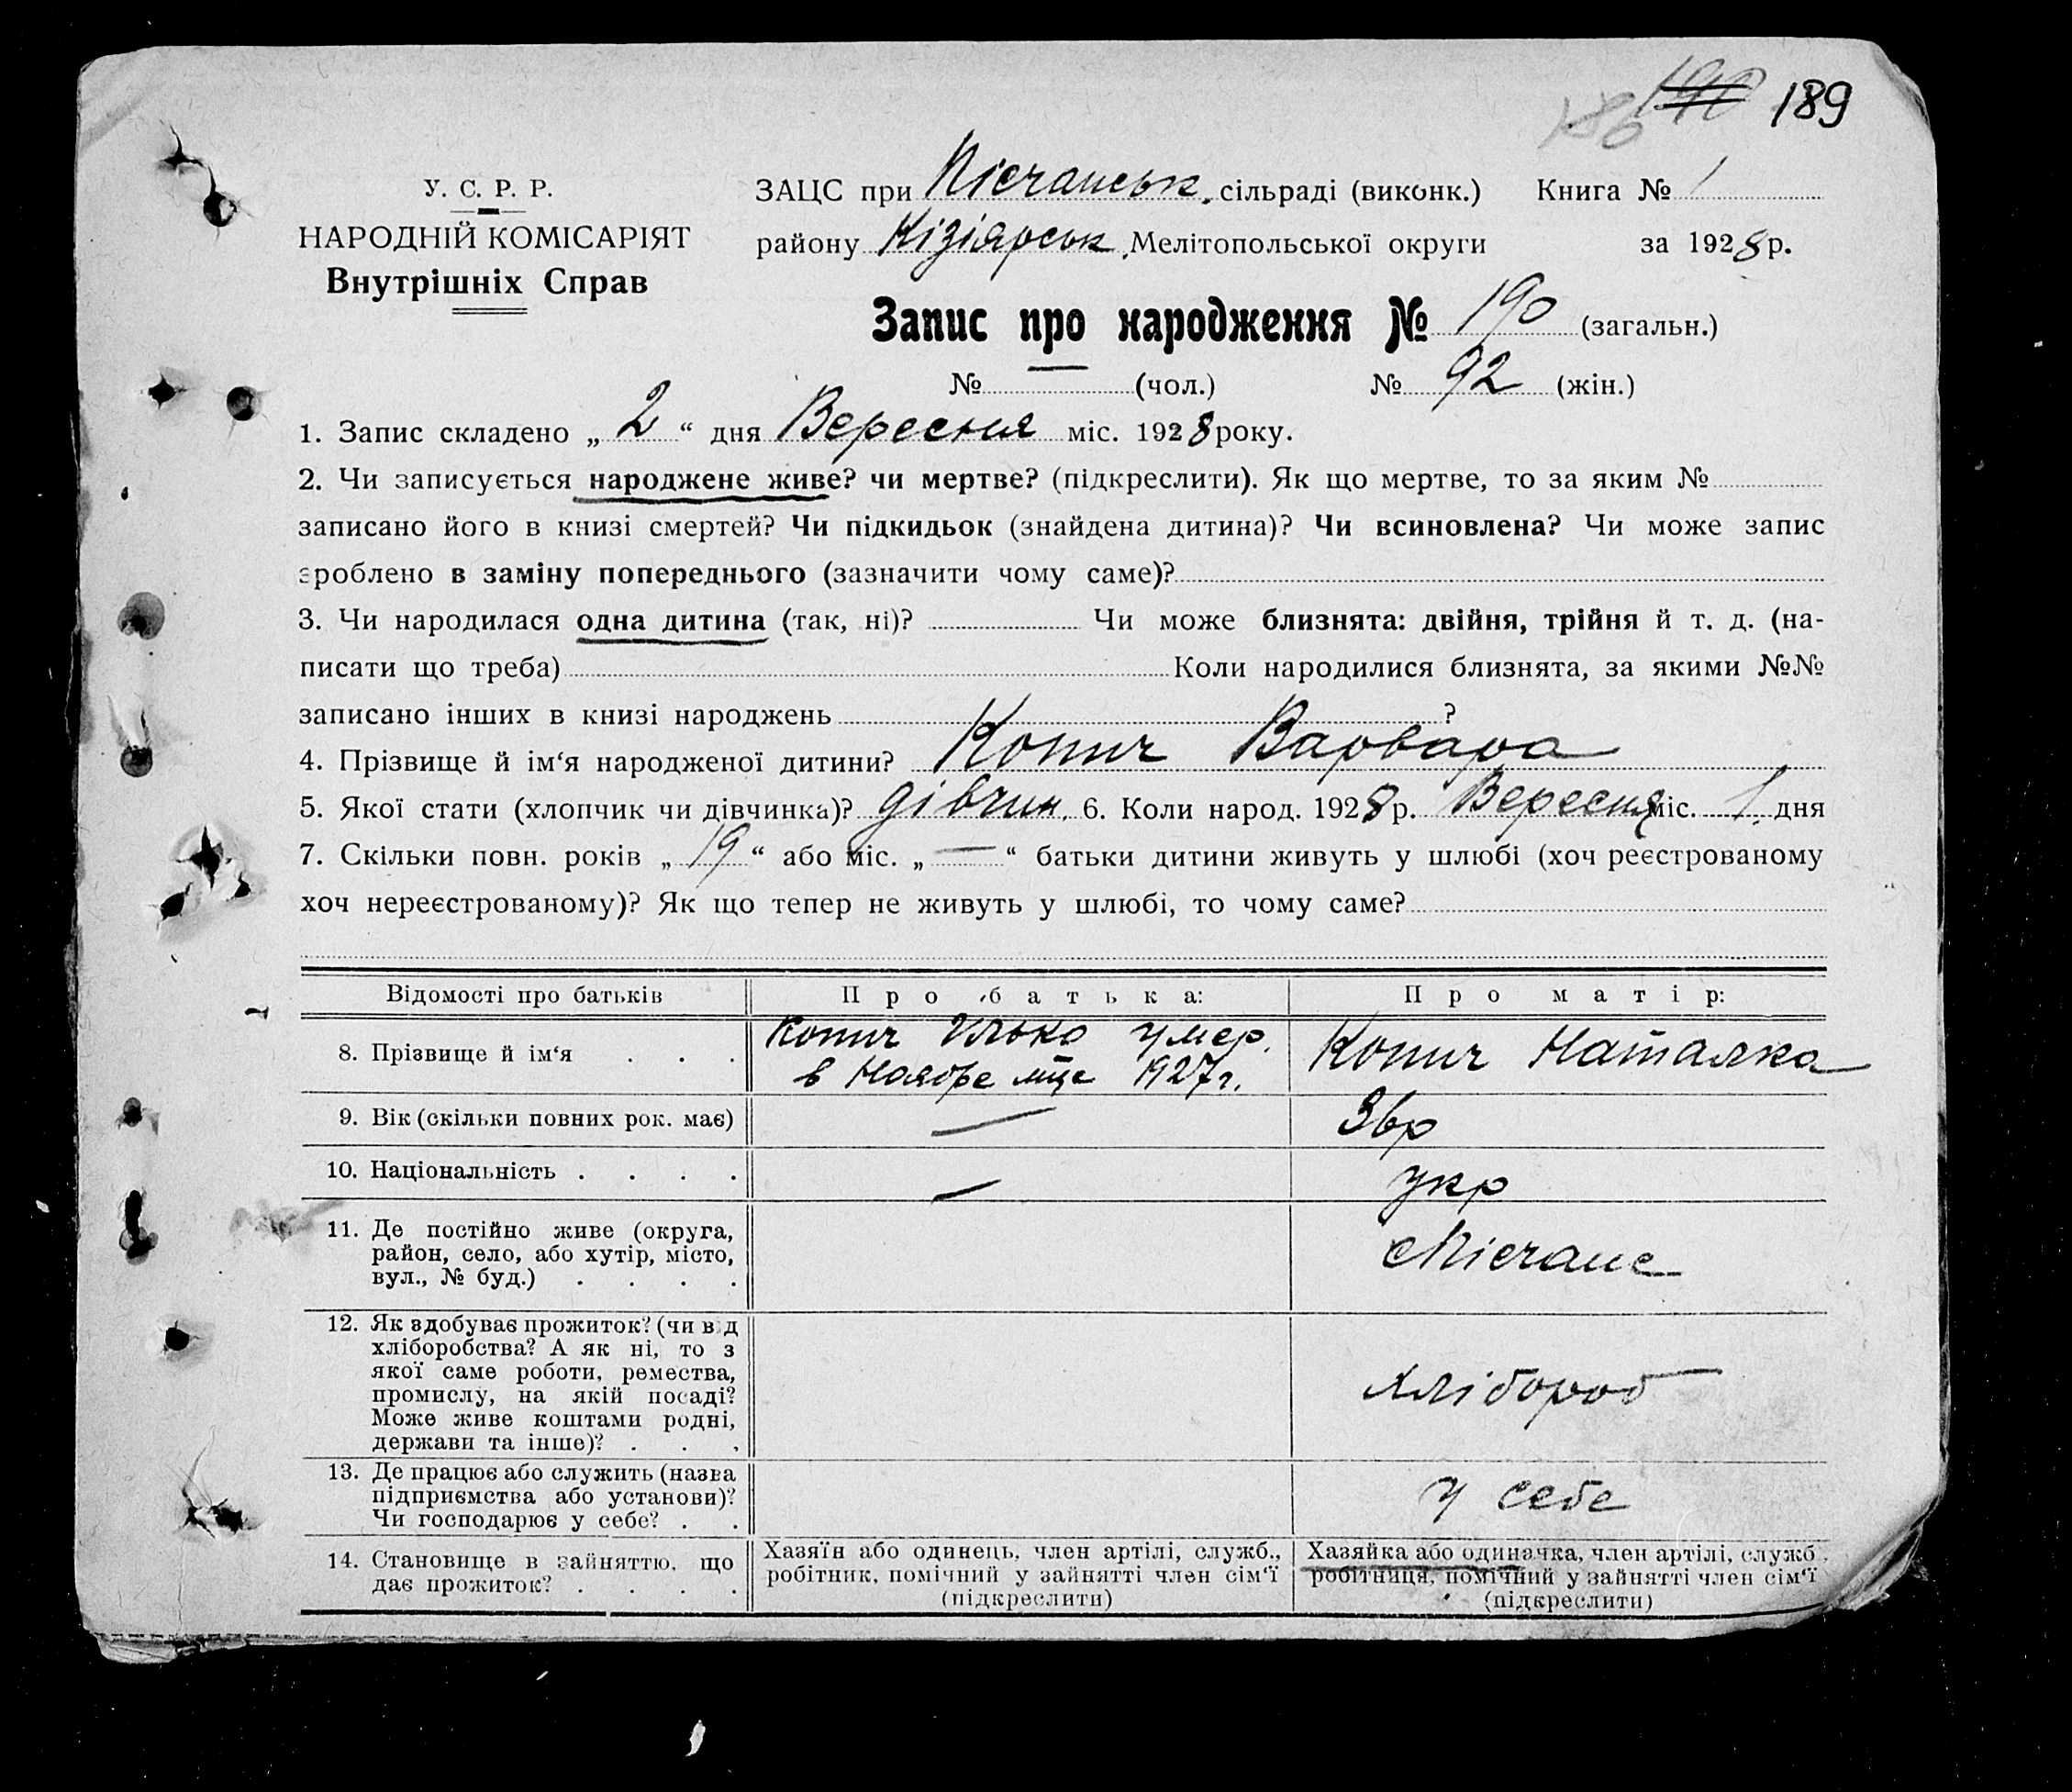 189
У. С. Р. Р.
НАРОДНІЙ КОМІСАРІЯТ
Внутрішніх Справ
ЗАЦС при Пісчанськ. сільраді (виконк.) Книга № 1
району Кізіярськ. Мелітопольської округи за 1928 р.
Запис про народження № 190 (загальн.)
№ — (чол.) № 92 (жін.)
1. Запис складено „ 2 “ дня Вересня міс. 1928 року.
2. Чи записується народжене живе? чи мертве? (підкреслити). Як що мертве, то за яким №
записано його в книзі смертей? Чи підкидьок (знайдена дитина)? Чи всиновлена? Чи може запис
зроблено в заміну попереднього (зазначити чому саме)?
3. Чи народилася одна дитина (так, ні)? Чи може близнята: двійня, трійня й т. д. (на-
писати що треба) Коли народилися близнята, за якими №№
записано інших в книзі народжень ?
4. Прізвище й ім‘я народженої дитини? Копич Варвара
5. Якої стати (хлопчик чи дівчинка)? дівчин. 6. Коли народ. 1928 р. Вересня міс. 1 дня
7. Скільки повн. років „ 19 “ або міс. „ — “ батьки дитини живуть у шлюбі (хоч реєстрованому
хоч нереєстрованому)? Як що тепер не живуть у шлюбі, то чому саме?
Відомості про батьків Про батька: Про матір:
8. Прізвище й ім‘я . . . Копич Илько умер. Копич Наталка
в Ноябре мце 1927 г.
9. Вік (скільки повних рок. має) — 36 р
10. Національність . . . . — укр
11. Де постійно живе (округа,
район, село, або хутір, місто,
вул., № буд.) . . . .
с Пісчане
12. Як здобуває прожиток? (чи від
хліборобства? А як ні, то з
якої саме роботи, ремества,
промислу, на якій посаді?
Може живе коштами родні,
держави та інше)? . . .
хлібороб
13. Де працює або служить (назва
підприємства або установи)?
Чи господарює у себе? . .
у себе
14. Становище в зайняттю, що
дає прожиток? . . . .
Хазяїн або одинець, член артілі, служб.,
робітник, помічний у зайнятті член сім‘ї
(підкреслити)
Хазяйка або одиначка, член артілі, служб.
робітниця, помічний у зайнятті член сім‘ї
(підкреслити)